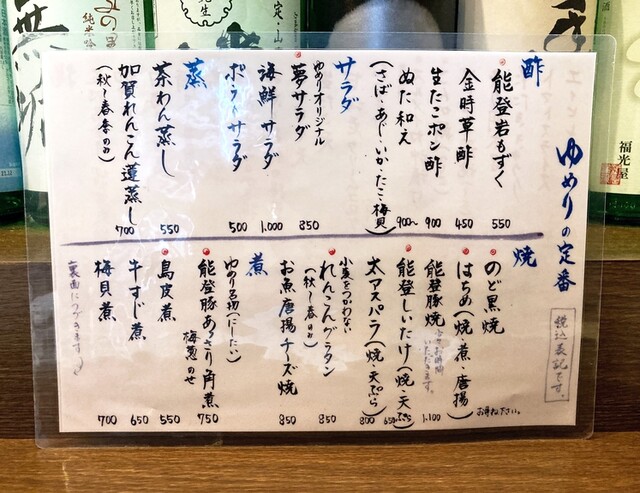 ゆめりの定番
税込表記です。
酢
能登岩もずく 550
金時草酢 450
生たこポン酢 900
ぬた和え 900〜
(さば・あじ・いか・たこ・梅貝)
サラダ
ゆめりオリジナル
夢サラダ 850
海鮮サラダ 1,000
ポテトサラダ 500
蒸
茶わん蒸し 550
加賀れんこん蓮蒸し 700
(秋〜春冬のみ)
焼
のど黒焼
はちめ(焼・煮・唐揚) お尋ね下さい。
能登豚焼 1,100
少々お時間
いただきます。
能登しいたけ(焼・天ぷら) 650
太アスパラ(焼・天ぷら) 800
小麦をつかわない
れんこんグラタン 850
(秋〜春のみ)
お魚唐揚チーズ焼 850
煮
能登豚あっさり角煮 750
梅葱のせ
鳥皮煮 550
牛すじ煮 650
梅貝煮 700
裏面につづきます
福光屋
純米吟